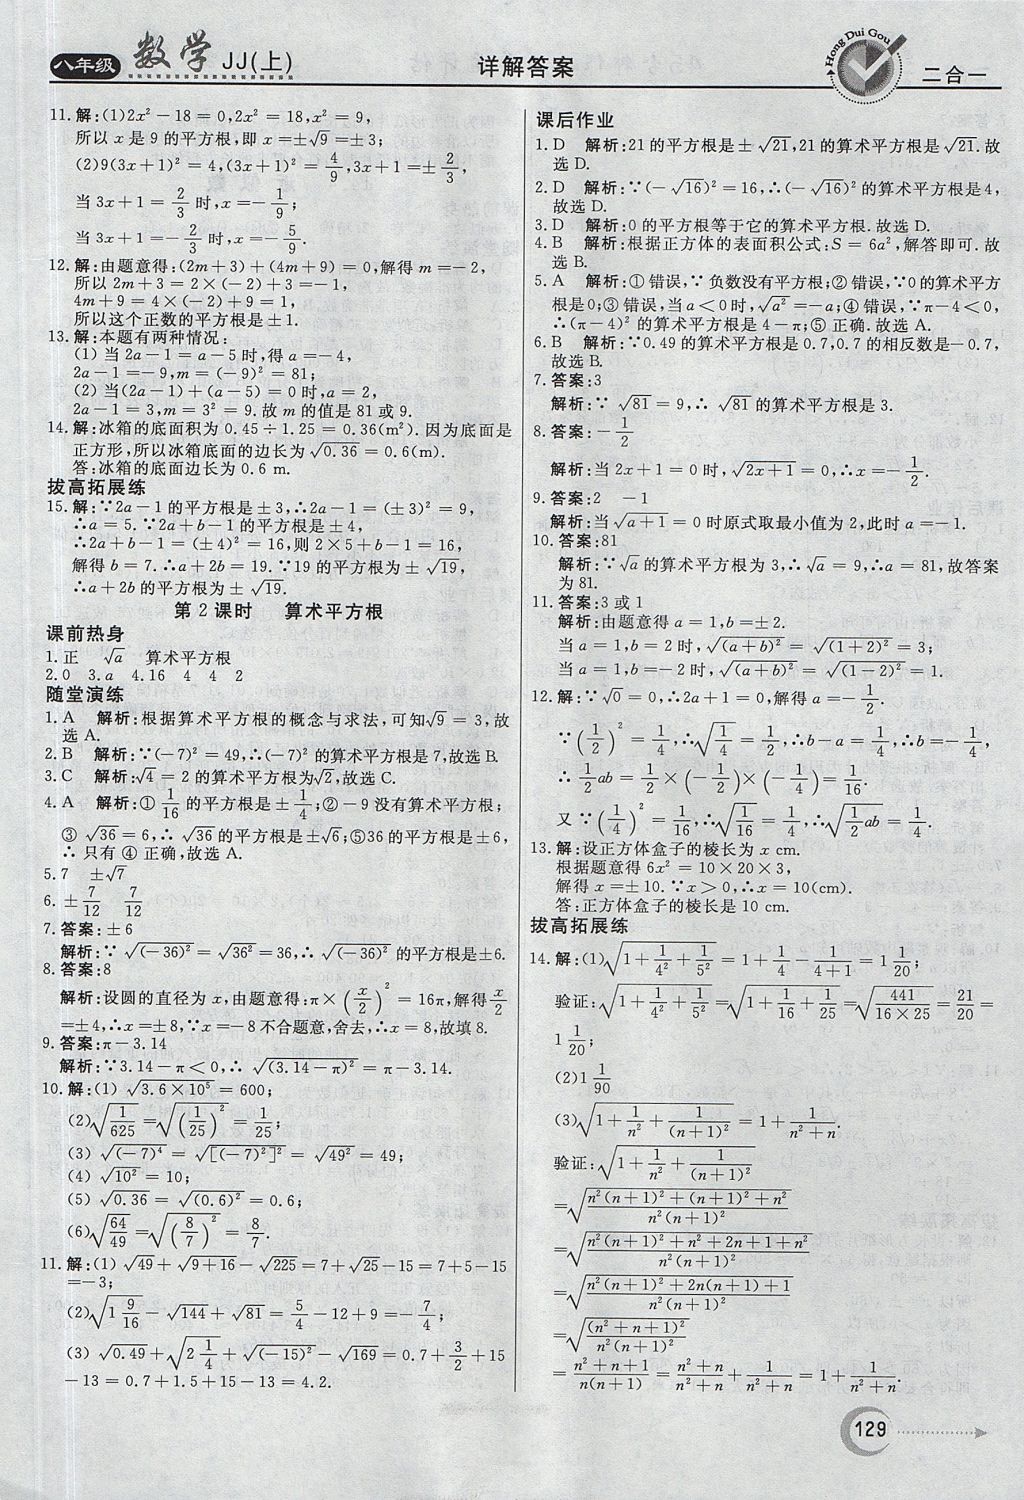 八年级 数学 JJ(上)
详解答案
Hong Dui Gou
二合一
11.解:(1)2x²-18=0,2x²=18,x²=9,
所以x是9的平方根,即x=±√9=±3;
(2)9(3x+1)²=4,(3x+1)²=4/9,3x+1=±2/3,
当3x+1=2/3时,x=-1/9;
当3x+1=-2/3时,x=-5/9.
12.解:由题意得:(2m+3)+(4m+9)=0,解得m=-2,
所以2m+3=2×(-2)+3=-1,
4m+9=4×(-2)+9=1,
所以这个正数的平方根是±1.
13.解:本题有两种情况:
(1)当2a-1=a-5时,得a=-4,
2a-1=-9,m=(-9)²=81;
(2)当(2a-1)+(a-5)=0时,a=2,
2a-1=3,m=3²=9.故m的值是81或9.
14.解:冰箱的底面积为0.45÷1.25=0.36(m²).因为底面是
正方形,所以冰箱底面的边长为√0.36=0.6(m).
答:冰箱的底面边长为0.6 m.
拔高拓展练
15.解:∵2a-1的平方根是±3,∴2a-1=(±3)²=9,
∴a=5.∵2a+b-1的平方根是±4,
∴2a+b-1=(±4)²=16,则2×5+b-1=16,
解得b=7.∴a+2b=19.∵19的平方根为±√19,
∴a+2b的平方根为±√19.
第2课时 算术平方根
课前热身
1.正 √a 算术平方根
2.0 3.a 4.16 4 4 2
随堂演练
1.A 解析:根据算术平方根的概念与求法,可知√9=3,故
选A.
2.B 解析:∵(-7)²=49,∴(-7)²的算术平方根是7,故选B.
3.C 解析:√4=2的算术平方根为√2,故选C.
4.A 解析:①1/16的平方根是±1/4;②-9没有算术平方根;
③√36=6,∴√36的平方根是±√6;⑤36的平方根是±6,
∴只有④正确,故选A.
5.7 ±√7
6.±7/12 7/12
7.答案:±6
解析:∵√(-36)²=√36²=36,∴√(-36)²的平方根是±6.
8.答案:8
解析:设圆的直径为x,由题意得:π×(x/2)²=16π,解得x/2
=±4,∴x=±8,∵x=-8不合题意,舍去,∴x=8,故填8.
9.答案:π-3.14
解析:∵3.14-π<0,∴√(3.14-π)²=π-3.14.
10.解:(1)√(3.6×10⁵)=600;
(2)√(1/625)=√(1/25)²=1/25;
(3)√(-7)⁴=√[(-7)²]²=√49²=49;
(4)√10²=10;
(5)√0.36=√(0.6)²=0.6;
(6)√(64/49)=√(8/7)²=8/7.
11.解:(1)√49+√(9+16)-√225=7+√25-15=7+5-15
=-3;
(2)√(1 9/16)-√144+√81=5/4-12+9=-7/4;
(3)√0.49+√(2 1/4)+√(-15)²-√169=0.7+3/2+15
-13=0.7+1.5+15-13=4.2.
课后作业
1.D 解析:21的平方根是±√21,21的算术平方根是√21.故
选D.
2.D 解析:∵(-√16)²=16,∴(-√16)²的算术平方根是4,
故选D.
3.D 解析:0的平方根等于它的算术平方根.故选D.
4.B 解析:根据正方体的表面积公式:S=6a²,解答即可.故
选B.
5.A 解析:①错误,∵负数没有平方根;②错误,∵0的算术平方
根是0;③错误,当a<0时,√a²=-a;④错误,∵π-4<0,
∴(π-4)²的算术平方根是4-π;⑤正确.故选A.
6.B 解析:∵0.49的算术平方根是0.7,0.7的相反数是-0.7,
故选B.
7.答案:3
解析:∵√81=9,∴√81的算术平方根是3.
8.答案:-1/2
解析:当2x+1=0时,√(2x+1)=0,∴x=-1/2.
9.答案:2 -1
解析:当√(a+1)=0时原式取最小值为2,此时a=-1.
10.答案:81
解析:∵√a的算术平方根为3,∴√a=9,∴a=81,故答案
为81.
11.答案:3或1
解析:由题意得a=1,b=±2.
当a=1,b=2时,√(a+b)²=√(1+2)²=3;
当a=1,b=-2时,√(a+b)²=√(1-2)²=1.
12.解:∵√0=0,∴2a+1=0,解得a=-1/2.
∵(1/2)²=1/4,∴√(1/4)=1/2,∴b-a=1/4,∴b=-1/4,
∴1/2ab=1/2×(-1/2)×(-1/4)=1/16.
又∵(1/4)²=1/16,∴√(1/16)=1/4,∴√(1/2ab)=1/4.
13.解:设正方体盒子的棱长为x cm.
根据题意得6x²=10×20×3,
解得x=±10.∵x>0,∴x=10(cm).
答:正方体盒子的棱长是10 cm.
拔高拓展练
14.解:(1)√(1+1/4²+1/5²)=1+1/4-1/(4+1)=1 1/20;
验证:√(1+1/4²+1/5²)=√(1+1/16+1/25)=√(441/(16×25))=21/20=
1 1/20;
(2)1 1/90
(3)√(1+1/n²+1/(n+1)²)=1+1/(n²+n).
验证:√(1+1/n²+1/(n+1)²)
=√((n²(n+1)²+(n+1)²+n²)/(n²(n+1)²))
=√((n²(n+1)²+n²+2n+1+n²)/(n²(n+1)²))
=√((n²(n+1)²+2n(n+1)+1)/(n²(n+1)²))
=√((n²+n+1)²/(n²(n+1)²))
=(n²+n+1)/(n(n+1))=(n²+n)/(n²+n)+1/(n²+n)=1+1/(n²+n).
Hong Dui Gou
129